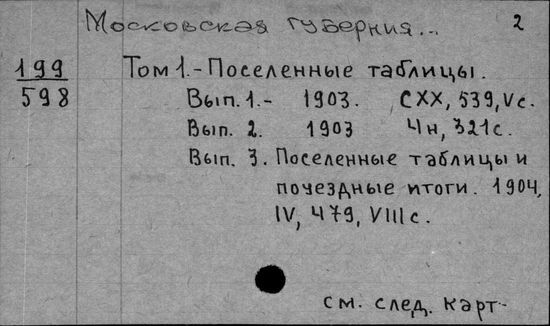 Московская губерния... 2
199
598
Том 1.- Поселенные таблицы.
Вып. 1. - 1903. CXX, 539, Vс.
Вып. 2. 1903 4н, 321с.
Вып. 3. Поселенные таблицы и
поуездные итоги. 1904,
IV, 479, VIIIс.
см. след. карт-